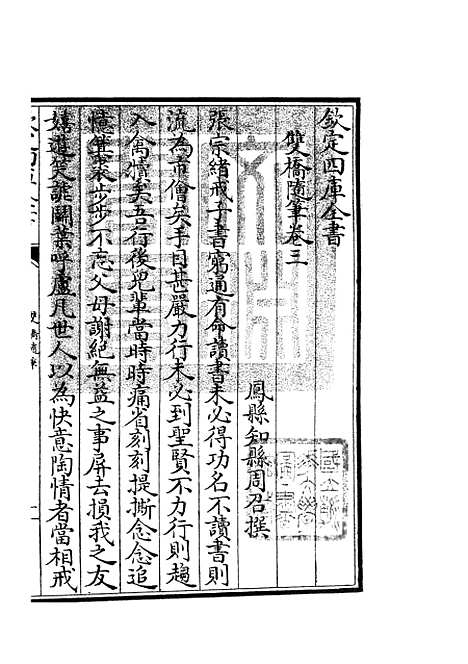 欽定四庫全書
雙橋隨筆卷三
鳳縣知縣周召撰
張宗緒戒子書窮通有命讀書未必得功名不讀書則
流為市儈矣手目甚嚴力行未必到聖賢不力行則趨
入禽犢矣吾行後兒輩當時時痛省刻刻提撕念念追
憶箕裘步步不忘父母謝絕無益之事屏去損我之友
嬉遊笑謔鬭葉呼盧凡世人以為快意陶情者當相戒
雙橋隨筆